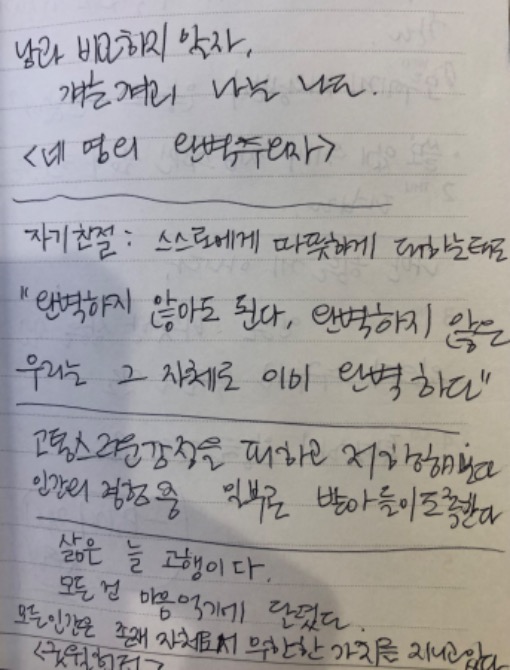 남과 비교하지 말자.
걔는 걔고 나는 나다.
<네 명의 완벽주의자>
자기친절: 스스로에게 따뜻하게 대하는태도
"완벽하지 않아도 된다. 완벽하지 않은
우리는 그 자체로 이미 완벽하다"
고통스러운감정을 피하고 저항하기보다
인간의 경험 중 일부로 받아들이도록한다
삶은 늘 고행이다.
모든 건 마음먹기에 달렸다.
모든인간은 존재 자체로서 무한한 가치를 지니고 있다